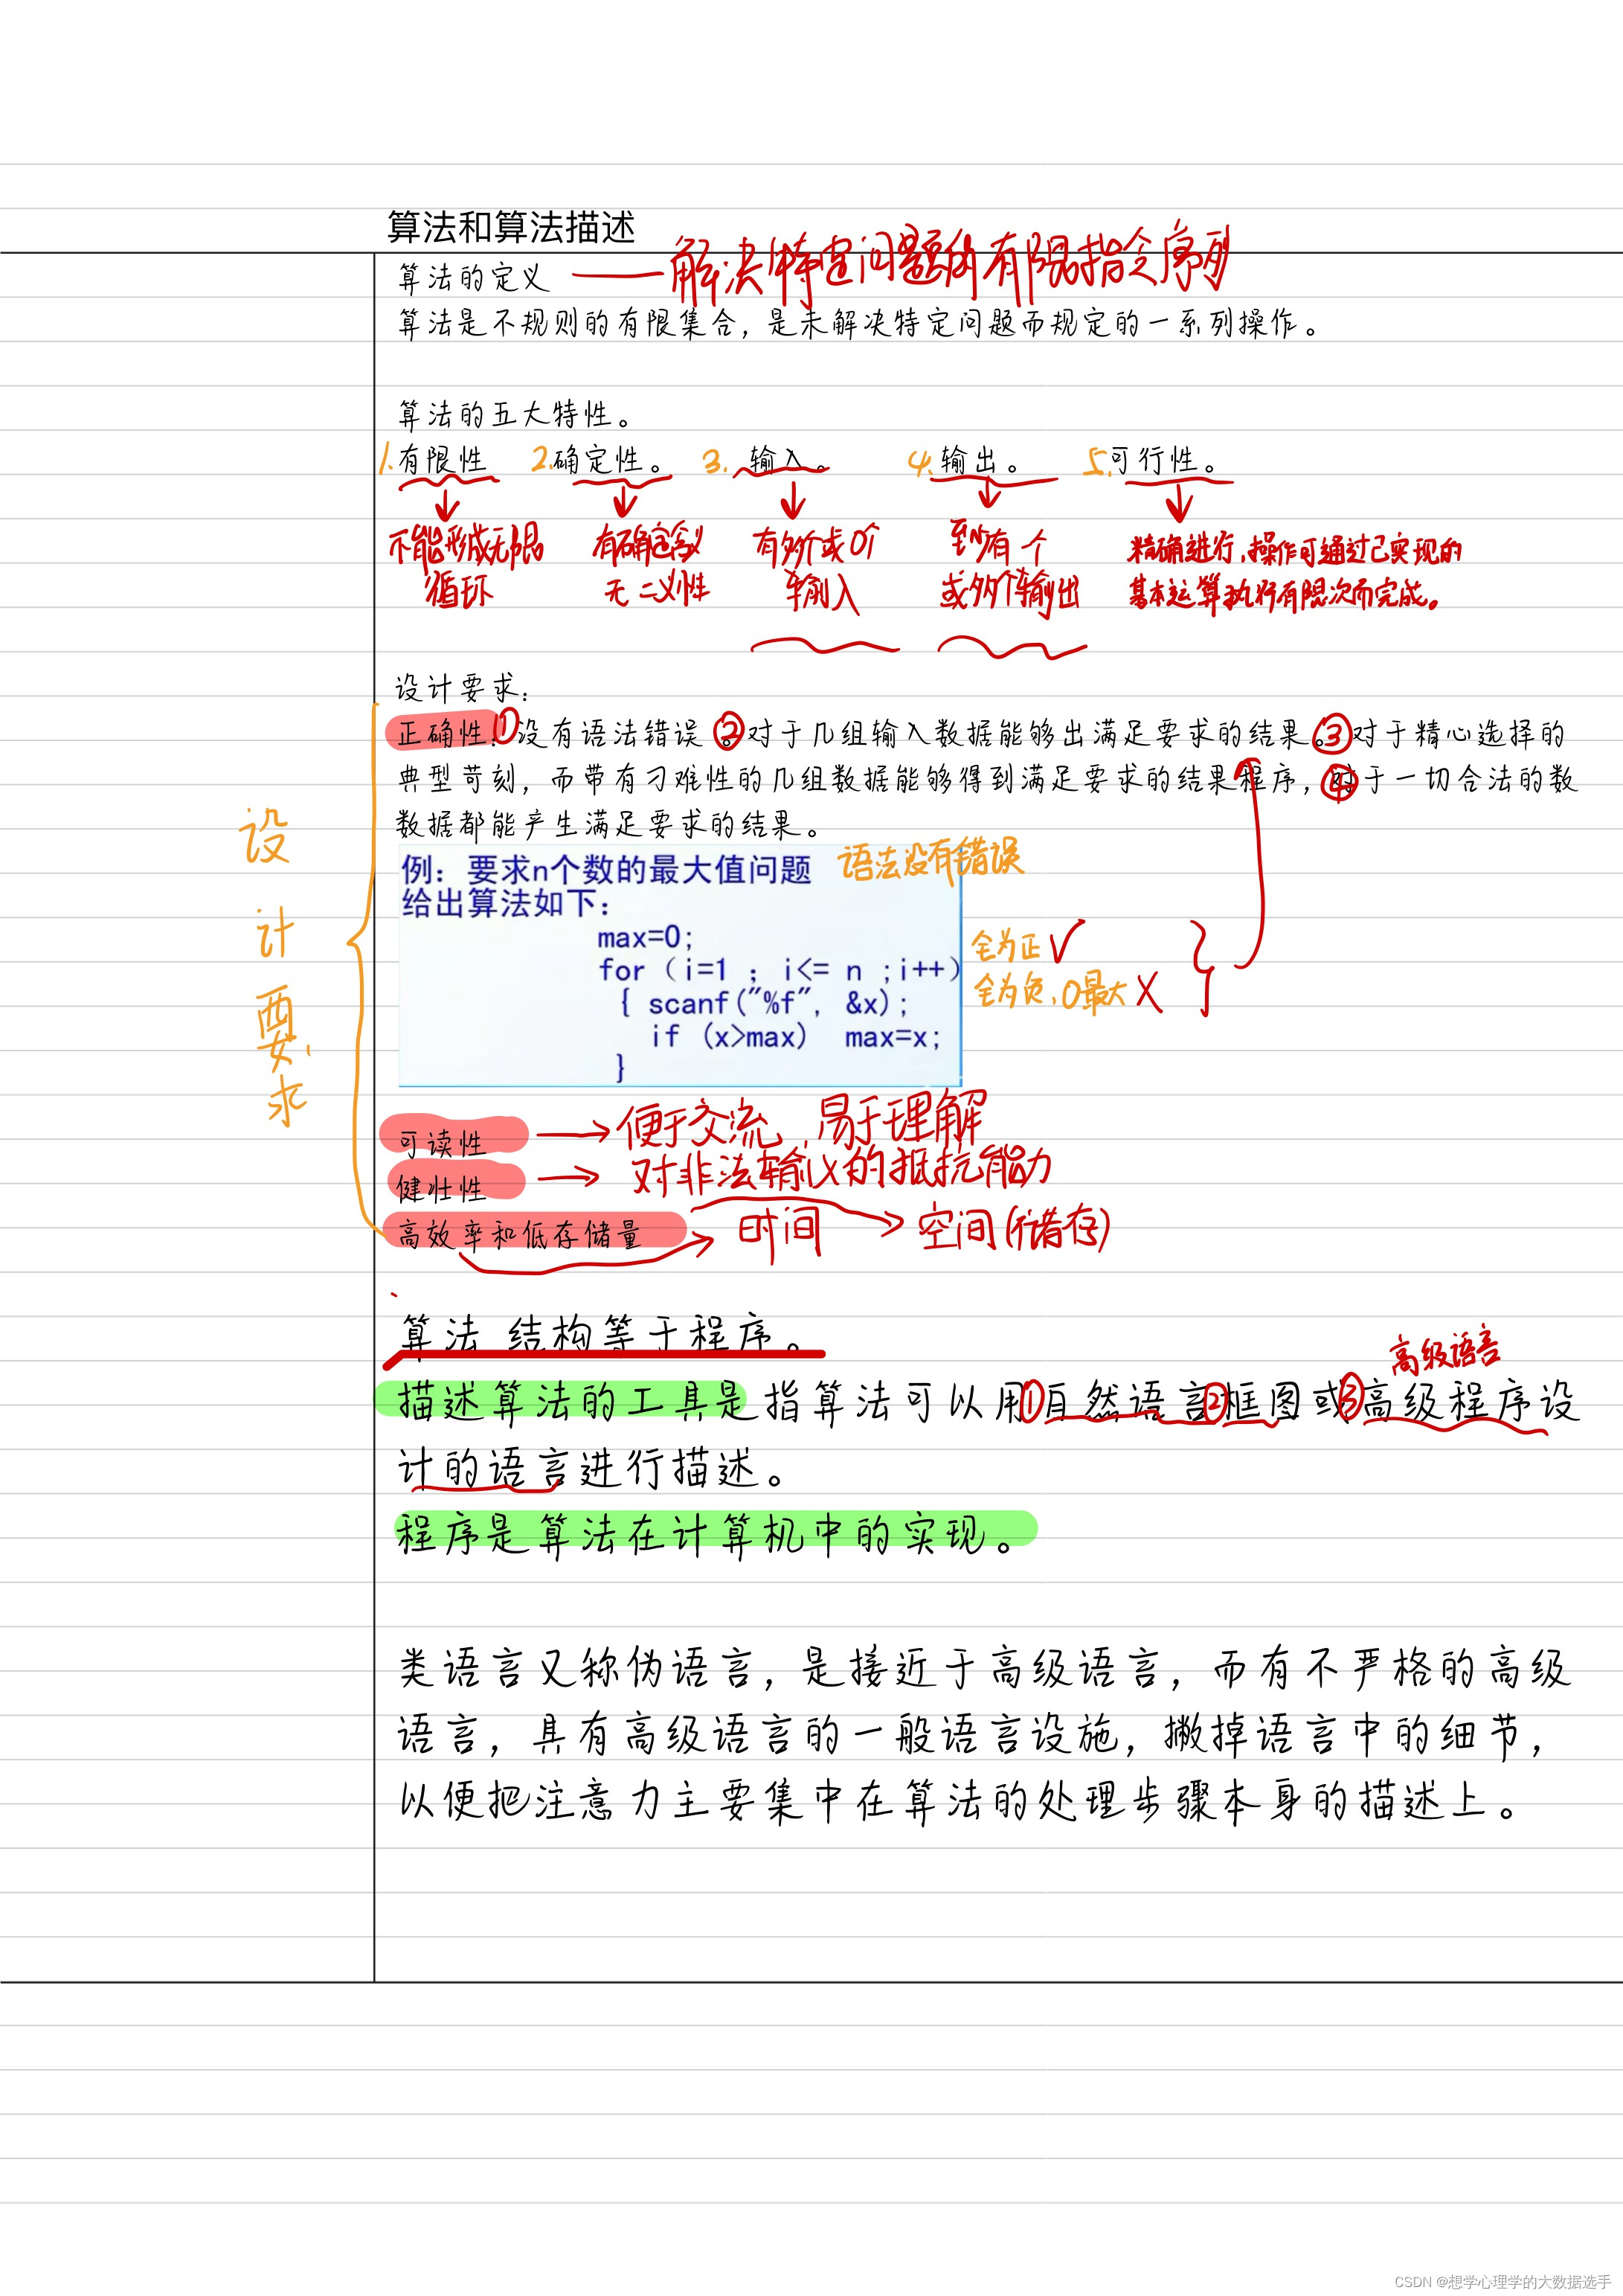 算法和算法描述
算法的定义 —— 解决特定问题的有限指令序列
算法是不规则的有限集合，是未解决特定问题而规定的一系列操作。
算法的五大特性。
1.有限性 2.确定性。 3.输入。 4.输出。 5.可行性。
不能形成无限 有确定含义 有多个或0个 到少有一个 精确进行，操作可通过已实现的
循环 无二义性 输入 或多个输出 基本运算执行有限次而完成。
设计要求：
正确性：①没有语法错误。②对于几组输入数据能够出满足要求的结果。③对于精心选择的
典型苛刻，而带有刁难性的几组数据能够得到满足要求的结果程序，④对于一切合法的数
数据都能产生满足要求的结果。
设计要求
例：要求n个数的最大值问题 语法没有错误
给出算法如下：
max=0;
for (i=1 ; i<= n ;i++)
{ scanf("%f", &x);
if (x>max) max=x;
}
全为正 √
全为负，0最大 X
可读性 → 便于交流，易于理解
健壮性 → 对非法输入的抵抗能力
高效率和低存储量 → 时间 → 空间(储存)
算法 结构等于程序。
高级语言
描述算法的工具是指算法可以用①自然语言②框图或③高级程序设
计的语言进行描述。
程序是算法在计算机中的实现。
类语言又称伪语言，是接近于高级语言，而有不严格的高级
语言，具有高级语言的一般语言设施，撇掉语言中的细节，
以便把注意力主要集中在算法的处理步骤本身的描述上。
CSDN @想学心理学的大数据选手